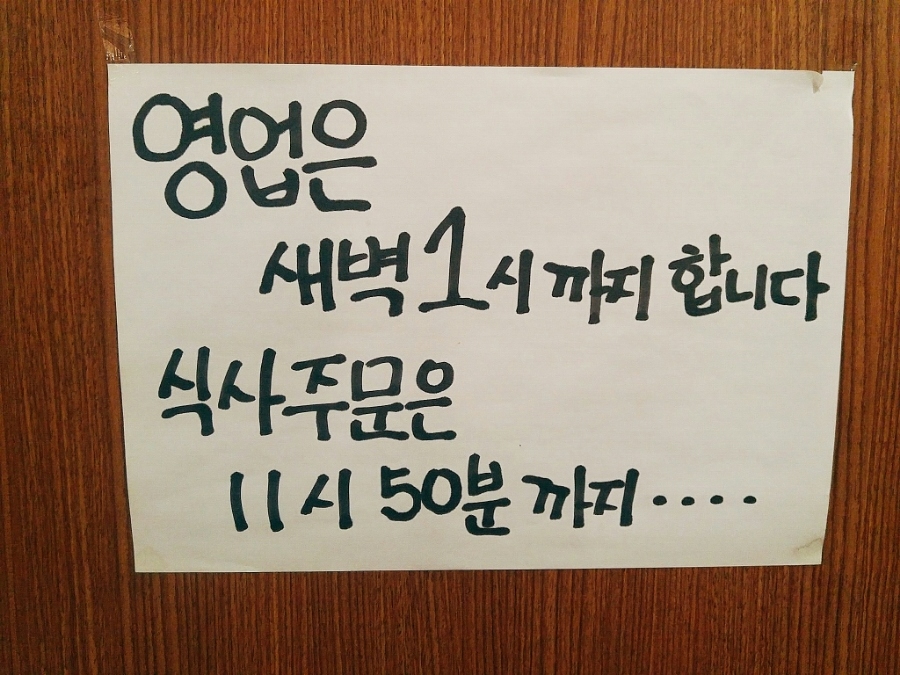 영업은
새벽 1시 까지 합니다
식사주문은
11시 50분 까지....